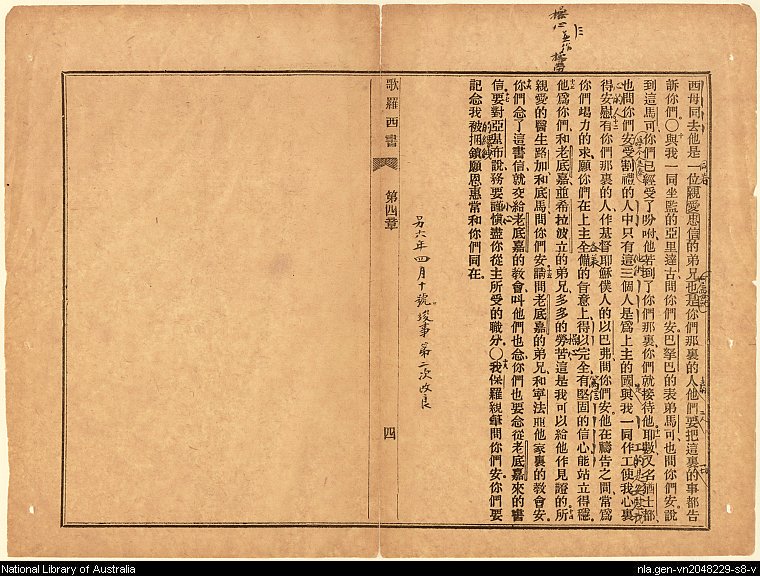 西母同去他是一位親愛忠信的弟兄也是你們那裏的人他們要把這裏的事都告
訴你們〇與我一同坐監的亞里達古問你們安巴拏巴的表弟馬可也問你們安說
到這馬可你們已經受了吩咐他若到了你們那裏你們就接待他耶數又名猶士都
也問你們安受割禮的人中只有這三個人是爲上主的國與我一同作工使我心裏
得安慰有你們那裏的人作基督耶穌僕人的以巴弗問你們安他在禱告之間常爲
你們竭力的求願你們在上主全備的旨意上得以完全有堅固的信心能站立得穩
他爲你們和老底嘉並希拉波立的弟兄多多的勞苦這是我可以給他作見證的所
親愛的醫生路加和底馬問你們安請問老底嘉的弟兄和寧法並他家裏的教會安
你們念了這書信就交給老底嘉的教會叫他們也念你們也要念從老底嘉來的書
信要對亞基布說務要謹愼盡你從主所受的職分〇我保羅親筆問你們安你們要
記念我被捆鎖願恩惠常和你們同在
另六年四月十號竣事第二次改良
歌羅西書 第四章 四
National Library of Australia
nla.gen-vn2048229-s8-v